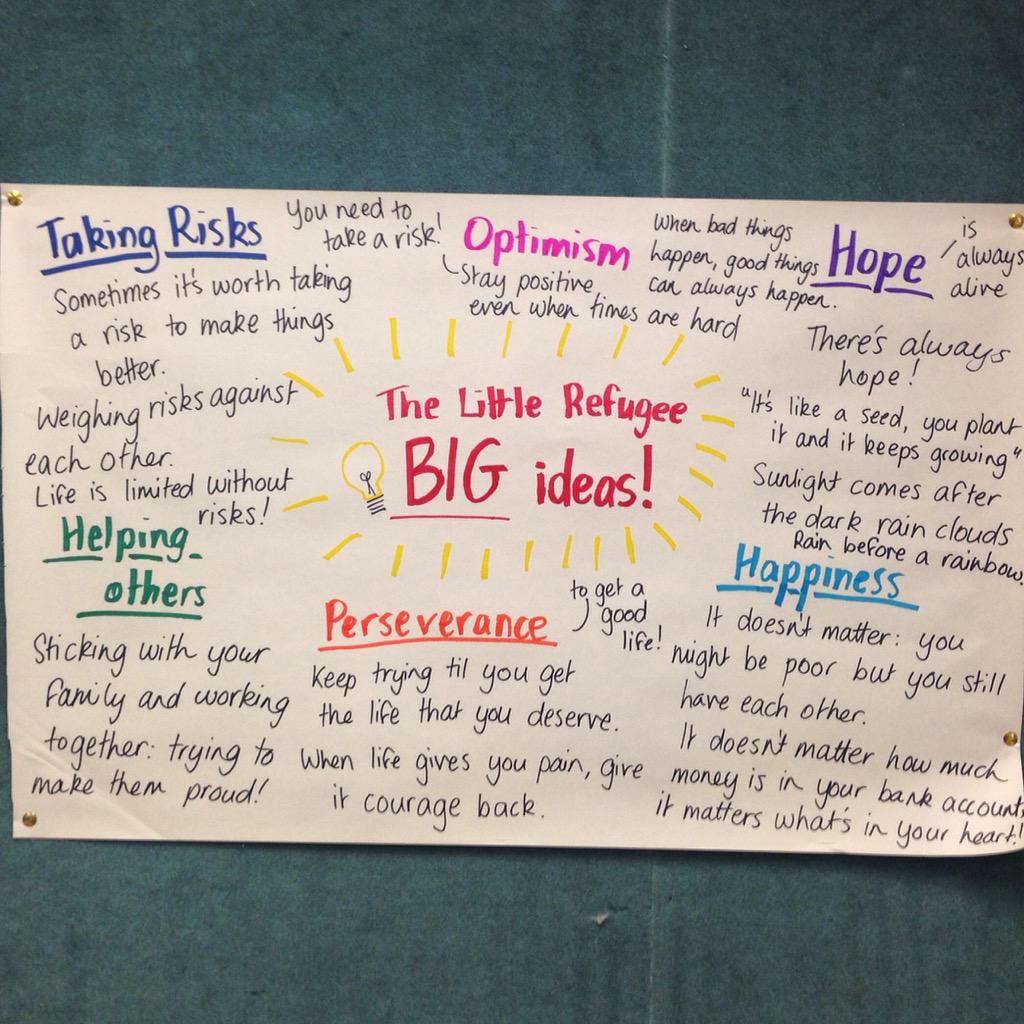 Taking Risks
Sometimes it's worth taking
a risk to make things
better.
Weighing risks against
each other.
Life is limited without
risks!
You need to
take a risk!
Optimism
Stay positive
even when times are hard
When bad things
happen, good things
can always happen.
Hope
is
always
alive
There's always
hope!
"It's like a seed, you plant
it and it keeps growing"
Sunlight comes after
the dark rain clouds
Rain before a rainbow.
The Little Refugee
BIG ideas!
Helping
others
Sticking with your
family and working
together: trying to
make them proud!
Perseverance
to get a
good
life!
Keep trying til you get
the life that you deserve.
When life gives you pain, give
it courage back.
Happiness
It doesn't matter: you
might be poor but you still
have each other.
It doesn't matter how much
money is in your bank account,
it matters what's in your heart!